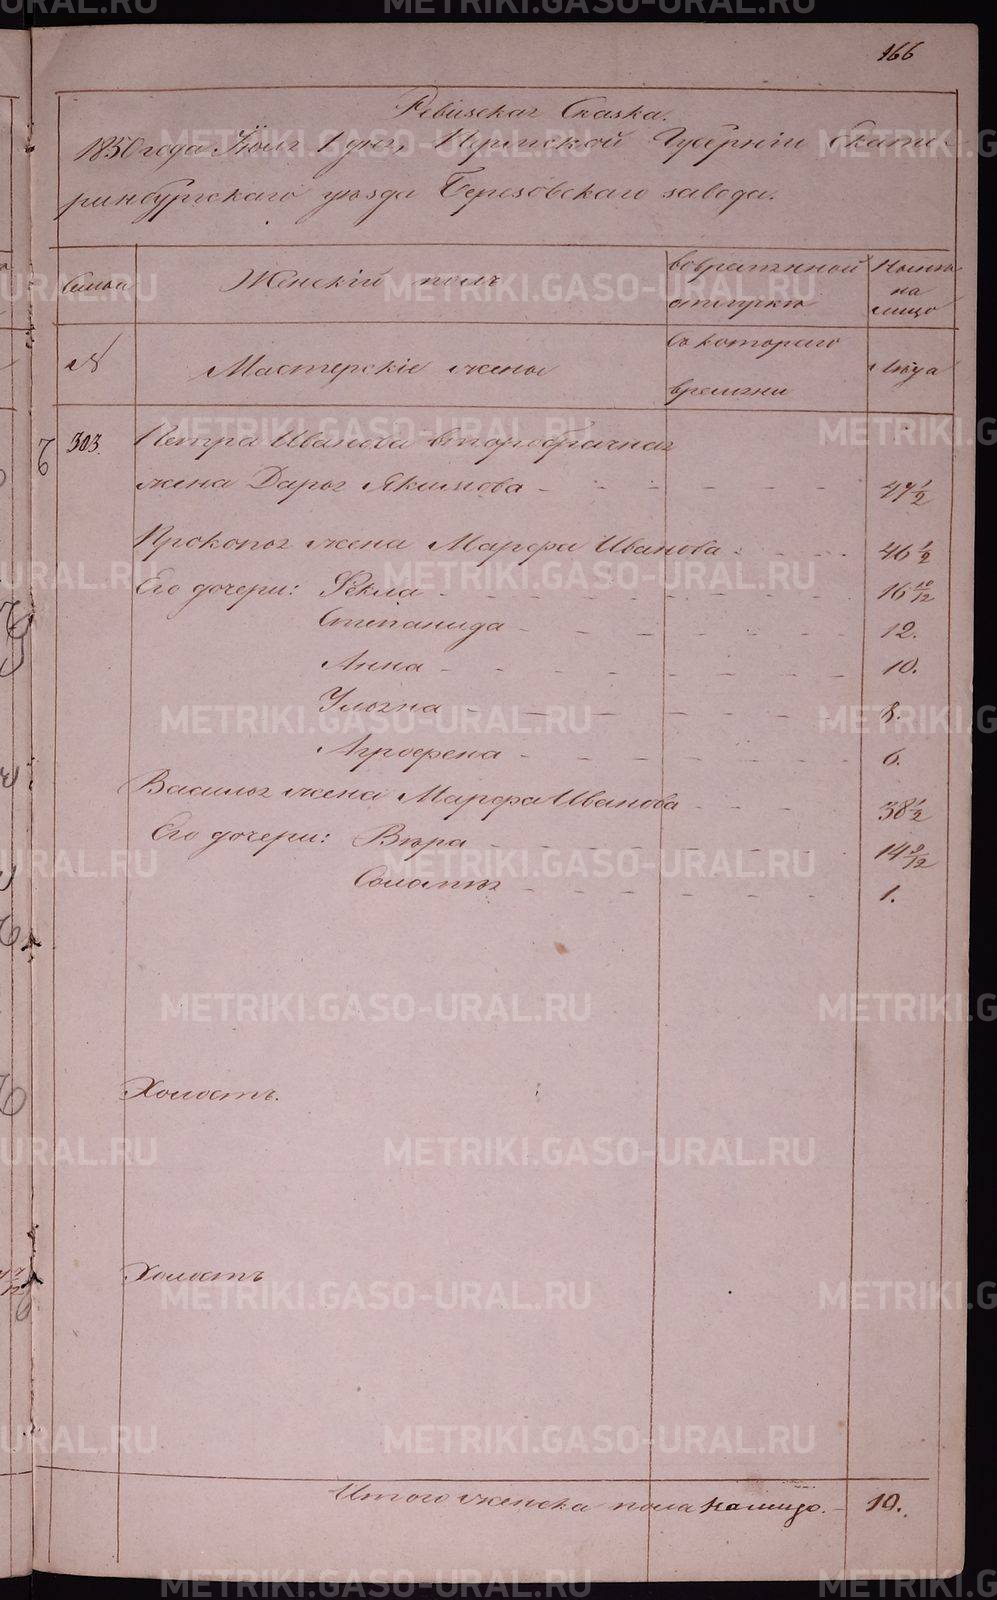 166
Ревизская Сказка.
1850 года Июля 1 дня, Пермской Губерніи Екате-
ринбургскаго уѣзда Березовскаго завода.
Семья
Женскій полъ
во временной
отлучкѣ
Нынѣ
на
лицо
№
Мастерскіе жены
съ котораго
времени
Лѣта
303.
Петра Иванова второбрачная
жена Дарья Якимова - 47 1/2
Прокопья жена Марфа Иванова - 46 1/2
Его дочери: Фекла - 16 10/12
Степанида - 12.
Анна - 10.
Ульяна - 8.
Агрофена - 6.
Василья жена Марфа Иванова - 38 1/2
Его дочери: Вѣра - 14 9/12
Соломія - 1.
Холостъ.
Холостъ
Итого женска пола на лицо. - 10.
METRIKI.GASO-URAL.RU